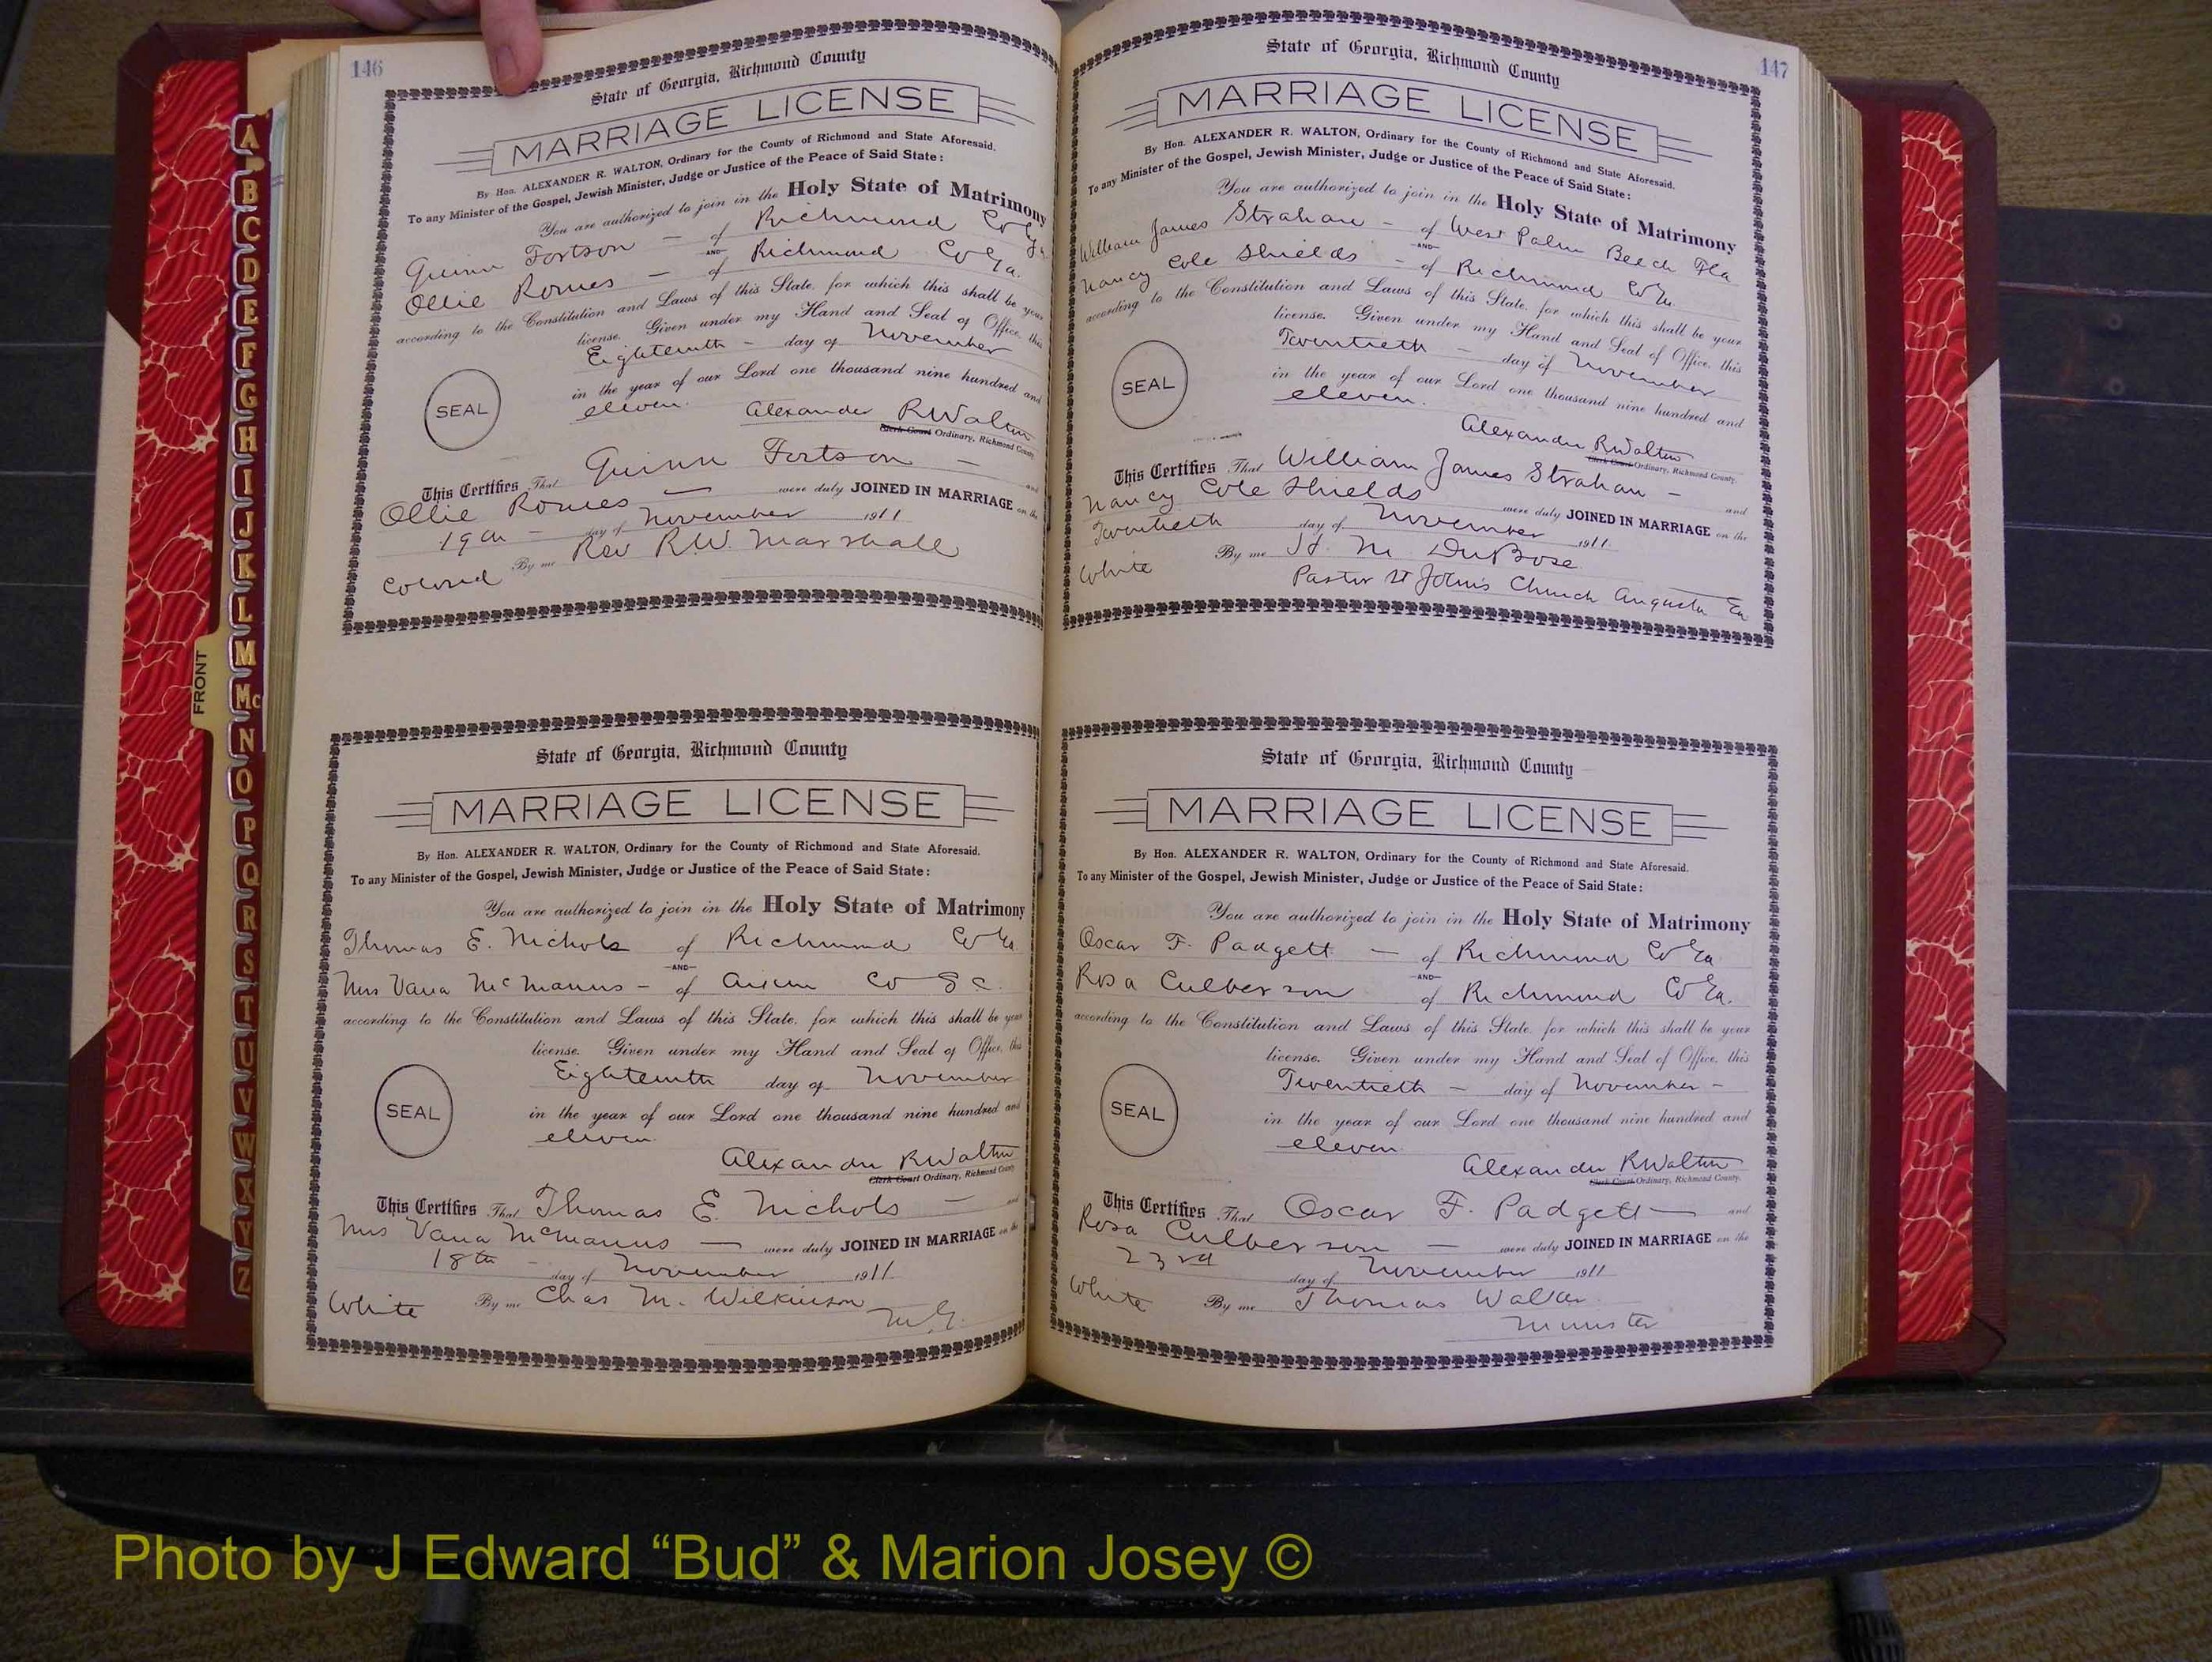 146
State of Georgia, Richmond County
MARRIAGE LICENSE
By Hon. ALEXANDER R. WALTON, Ordinary for the County of Richmond and State Aforesaid.
To any Minister of the Gospel, Jewish Minister, Judge or Justice of the Peace of Said State:
You are authorized to join in the Holy State of Matrimony
Quinn Fortson - of Richmond Co Ga.
AND
Ollie Romes - of Richmond Co Ga.
according to the Constitution and Laws of this State, for which this shall be your
license. Given under my Hand and Seal of Office, this
Eighteenth - day of November
in the year of our Lord one thousand nine hundred and
SEAL
eleven.
Alexander R Walton
Clerk Court Ordinary, Richmond County.
This Certifies That Quinn Fortson - and
Ollie Romes - were duly JOINED IN MARRIAGE on the
19th - day of November 1911
By me Rev R.W. Marshall
Colored
State of Georgia, Richmond County
MARRIAGE LICENSE
By Hon. ALEXANDER R. WALTON, Ordinary for the County of Richmond and State Aforesaid.
To any Minister of the Gospel, Jewish Minister, Judge or Justice of the Peace of Said State:
You are authorized to join in the Holy State of Matrimony
Thomas E. Nichols of Richmond Co Ga.
AND
Mrs Vana McManus - of Aiken Co S C.
according to the Constitution and Laws of this State, for which this shall be your
license. Given under my Hand and Seal of Office, this
Eighteenth day of November
SEAL
in the year of our Lord one thousand nine hundred and
eleven
Alexander R Walton
Clerk Court Ordinary, Richmond County
This Certifies That Thomas E. Nichols - and
Mrs Vana McManus - were duly JOINED IN MARRIAGE on the
18th - day of November 1911
White By me Chas M. Wilkinson
M.G.
147
State of Georgia, Richmond County
MARRIAGE LICENSE
By Hon. ALEXANDER R. WALTON, Ordinary for the County of Richmond and State Aforesaid.
To any Minister of the Gospel, Jewish Minister, Judge or Justice of the Peace of Said State:
You are authorized to join in the Holy State of Matrimony
William James Strahan - of West Palm Beech Fla
AND
Nancy Cole Shields - of Richmond Co Ga.
according to the Constitution and Laws of this State, for which this shall be your
license. Given under my Hand and Seal of Office, this
Twentieth - day of November
SEAL
in the year of our Lord one thousand nine hundred and
eleven.
Alexander R Walton
Clerk Court Ordinary, Richmond County.
This Certifies That William James Strahan -
Nancy Cole Shields and
were duly JOINED IN MARRIAGE on the
Twentieth day of November 1911
White By me H. M. DuBose
Pastor St John's Church Augusta Ga
State of Georgia, Richmond County
MARRIAGE LICENSE
By Hon. ALEXANDER R. WALTON, Ordinary for the County of Richmond and State Aforesaid.
To any Minister of the Gospel, Jewish Minister, Judge or Justice of the Peace of Said State:
You are authorized to join in the Holy State of Matrimony
Oscar F. Padgett - of Richmond Co Ga
AND
Rosa Culberson of Richmond Co Ga.
according to the Constitution and Laws of this State, for which this shall be your
license. Given under my Hand and Seal of Office, this
Twentieth - day of November -
SEAL
in the year of our Lord one thousand nine hundred and
eleven.
Alexander R Walton
Clerk Court Ordinary, Richmond County.
This Certifies That Oscar F. Padgett - and
Rosa Culberson - were duly JOINED IN MARRIAGE on the
23rd day of November 1911
White By me Thomas Walker
Minister
A
B
C
D
E
F
G
H
I
J
K
L
M
Mc
N
O
P
Q
R
S
T
U
V
W
X
Y
Z
FRONT
Photo by J Edward “Bud” & Marion Josey ©